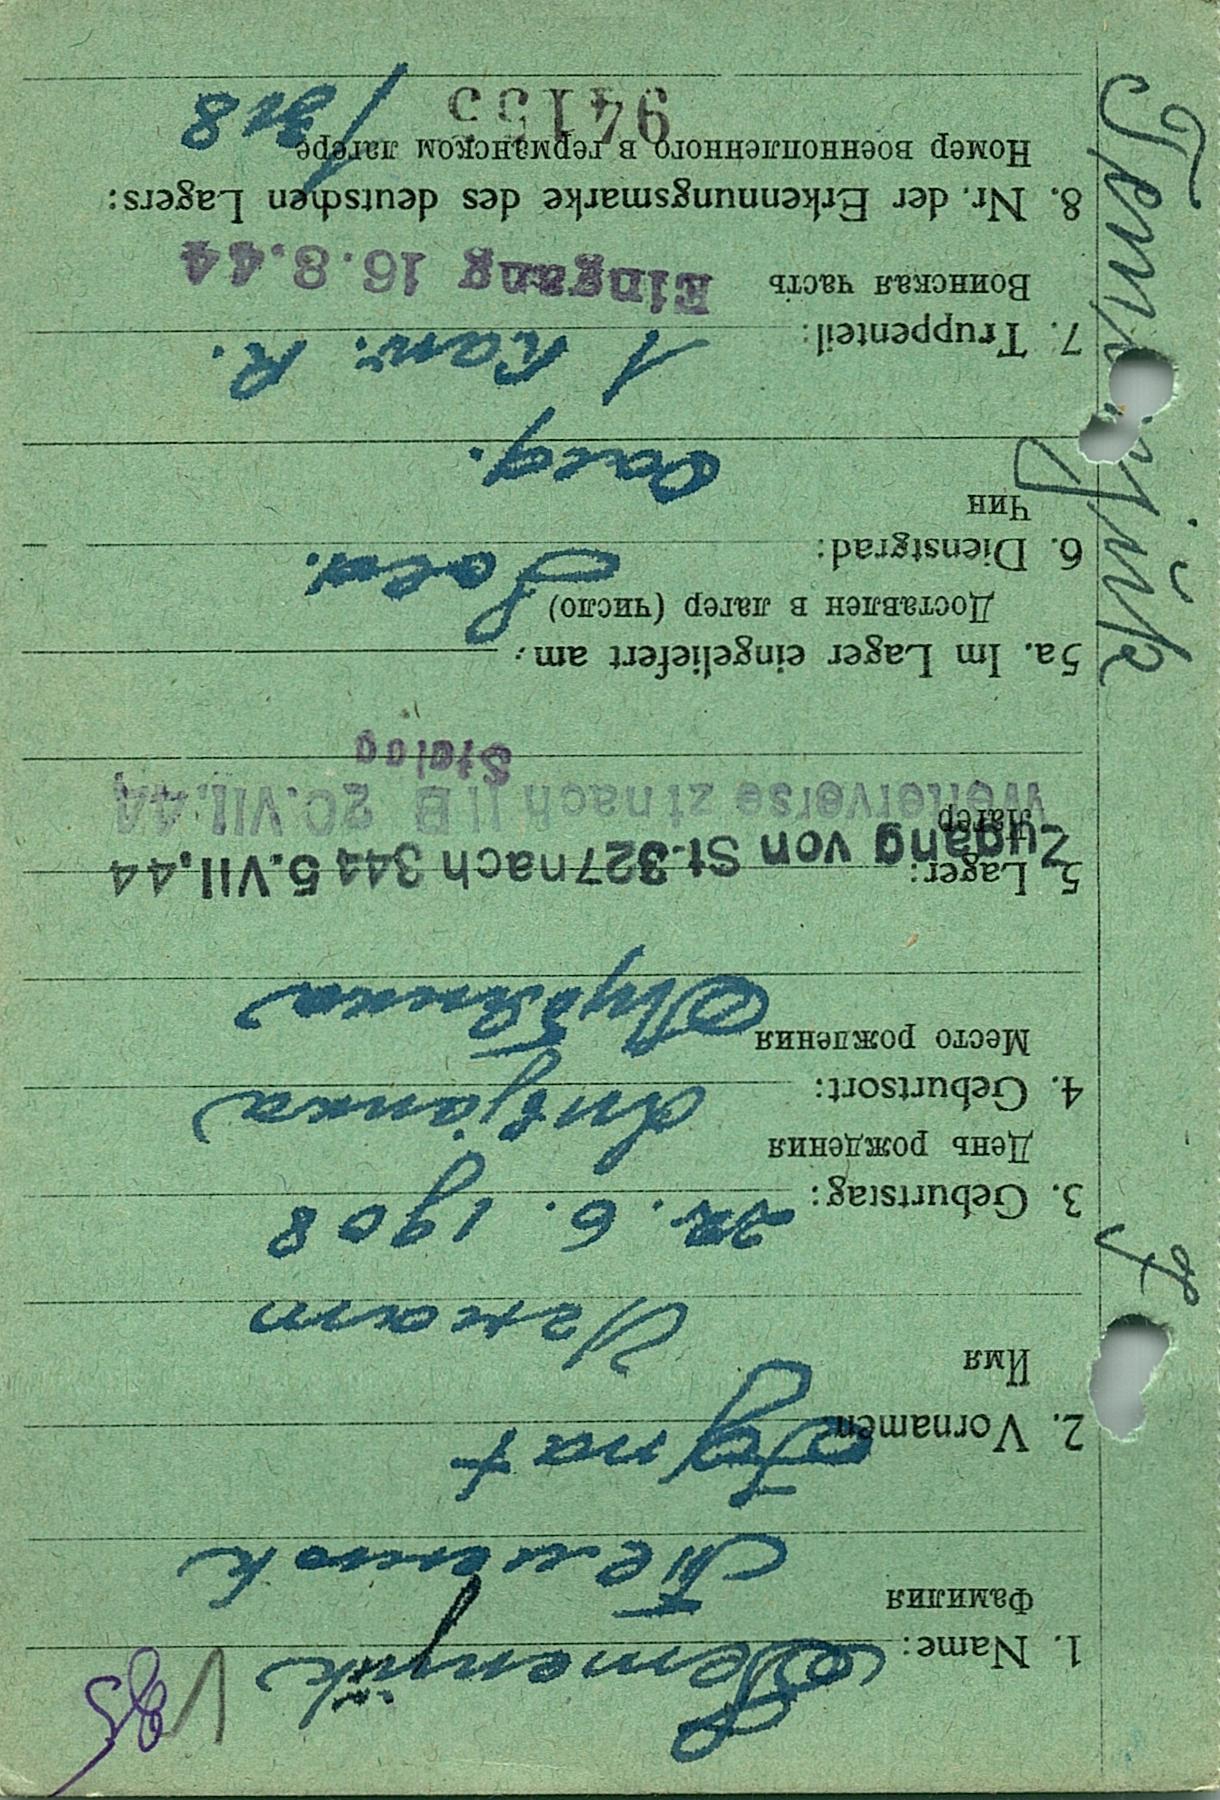 V 85
1. Name: Temenjük
Фамилия Теменюк
2. Vornamen Ignat
Имя Игнат
3. Geburtstag: 22. 6. 1908
День рождения
4. Geburtsort:
Место рождения
5. Lager:
Лагер
Zugang von St.327 nach 344 5.VII.44
Weiterverse zt nach II B 20.VII.44
Stalag
5a. Im Lager eingeliefert am:
Доставлен в лагер (число)
6. Dienstgrad: Sold.
Чин солд.
7. Truppenteil: 1 Kav. R.
Воинская часть Eingang 16.8.44
8. Nr. der Erkennungsmarke des deutschen Lagers:
Номер военнопленного в германском лагере
94155 /318
Temenjük J